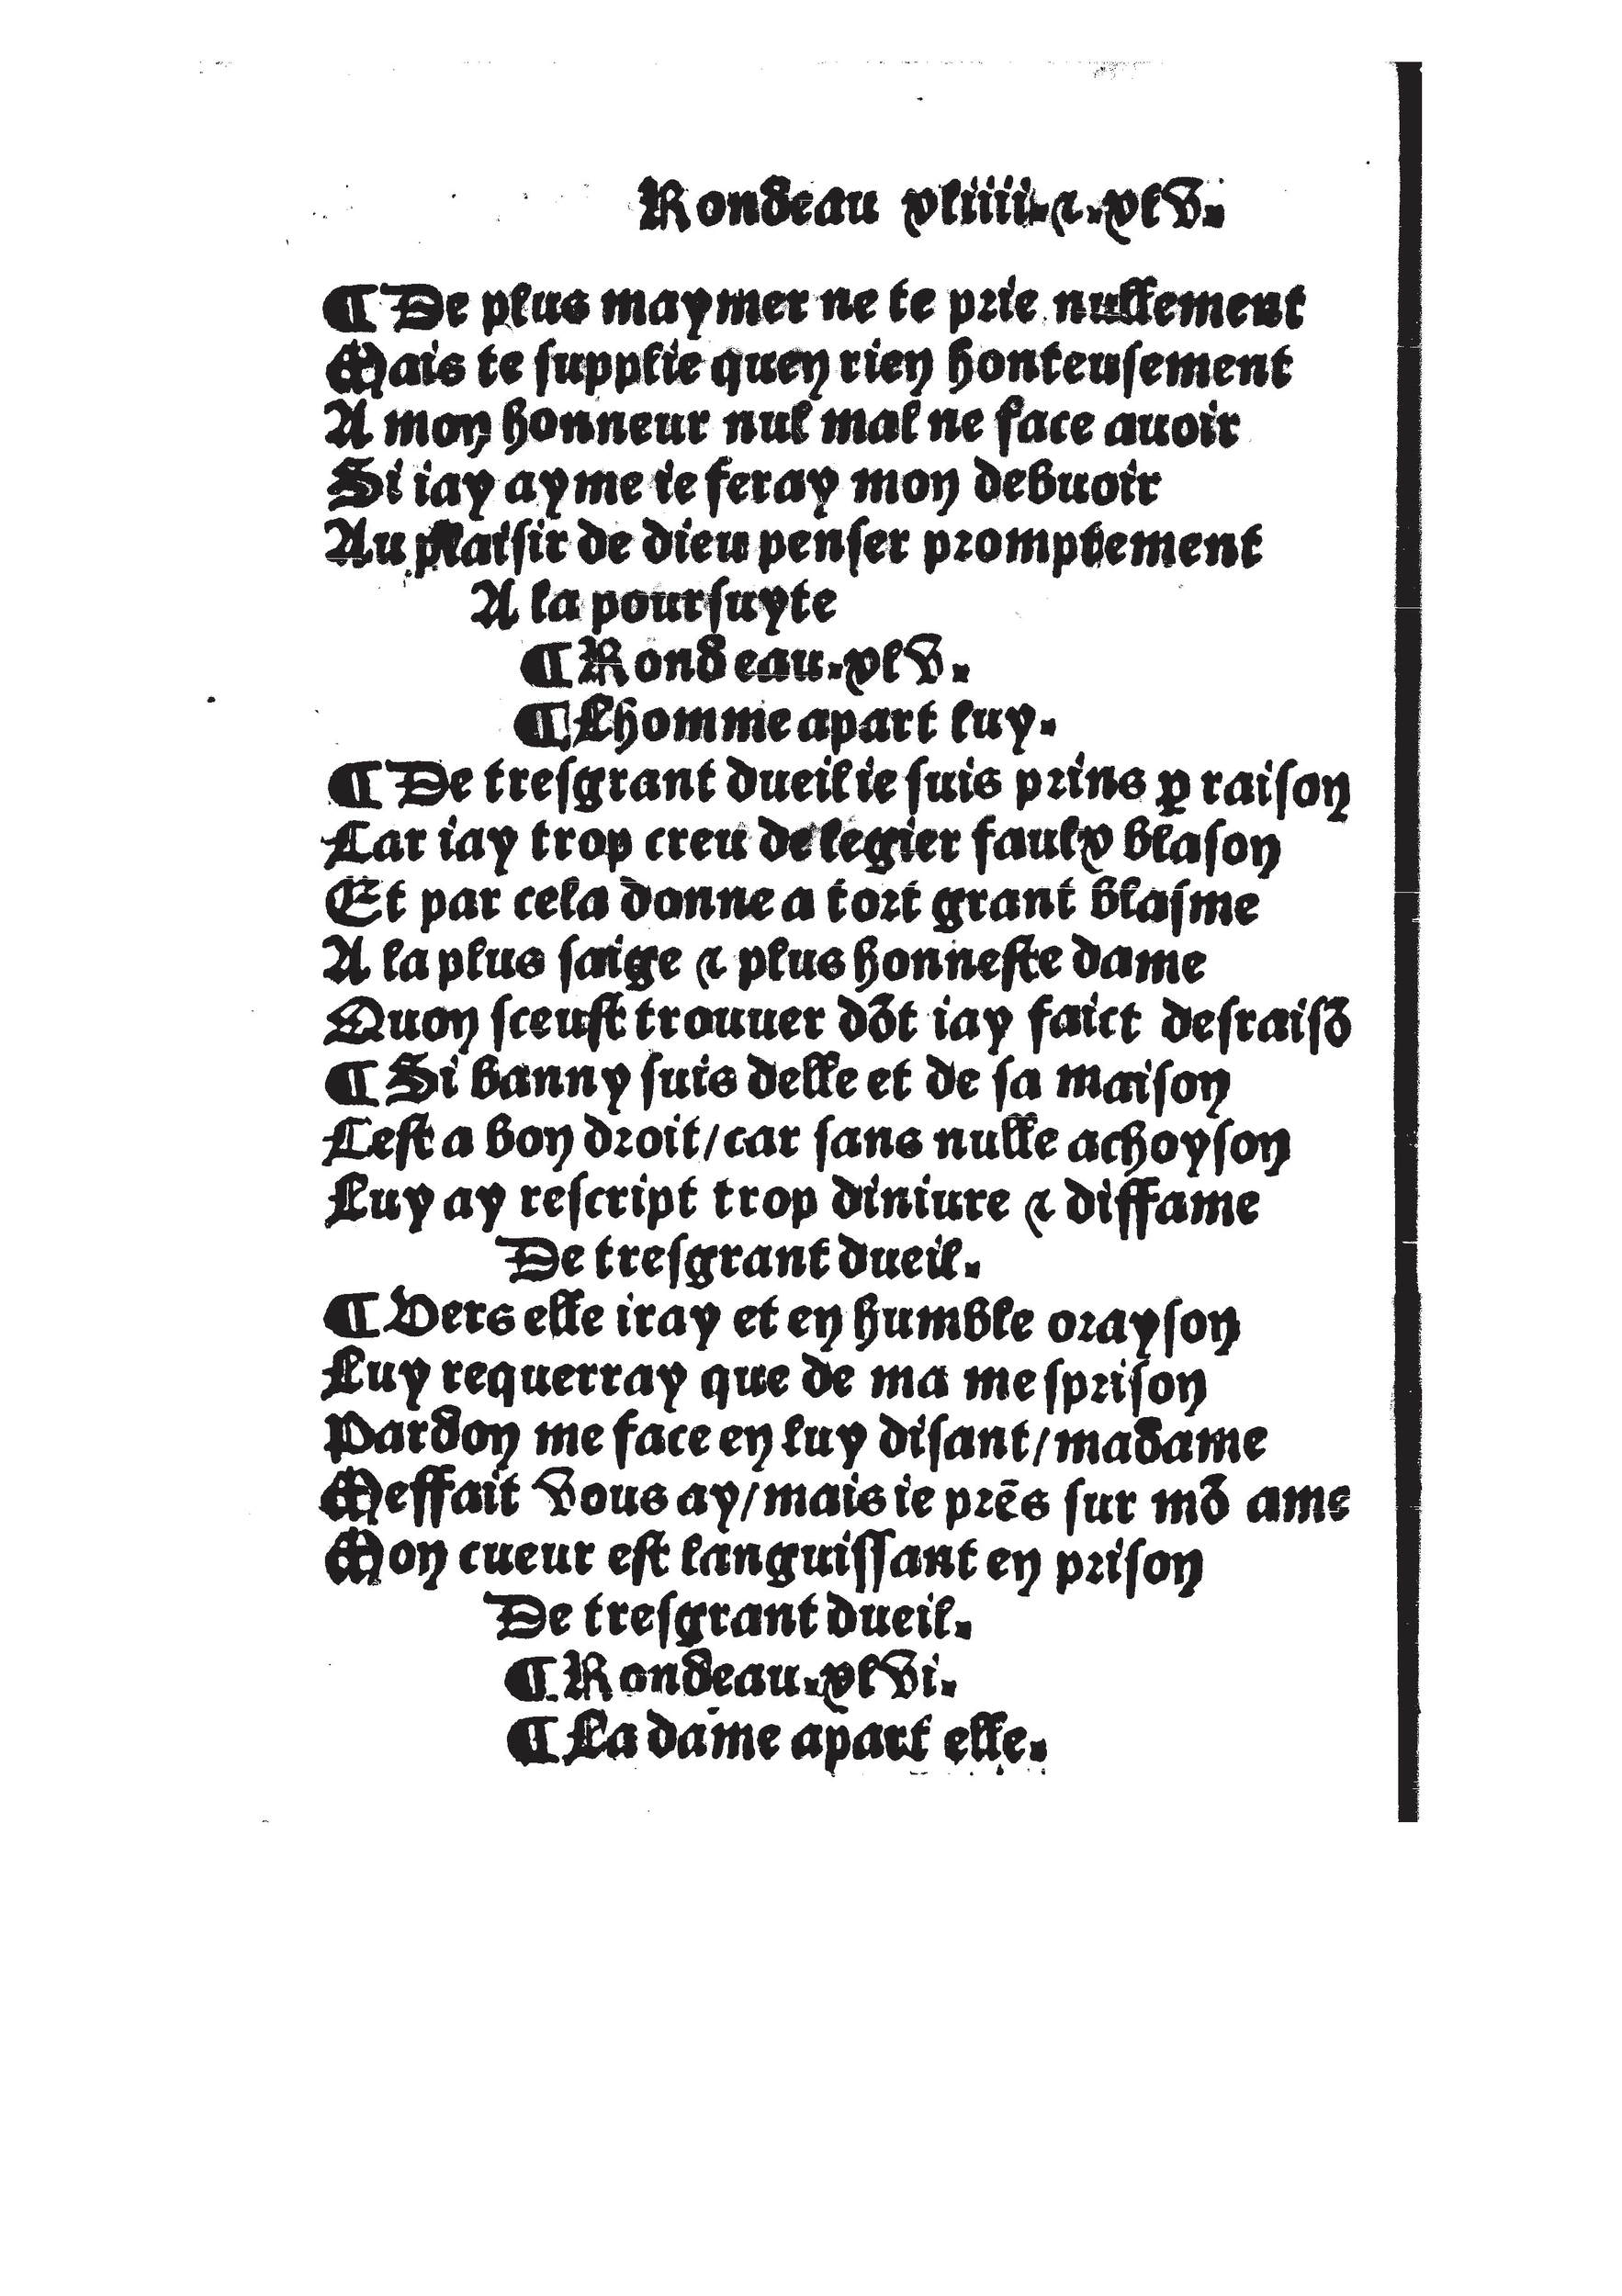 Rondeau xliiii.⁊.xlv.
¶ De plus maymer ne te prie nullement
Mais te supplie quen rien honteusement
A mon honneur nul mal ne face auoir
Si iay ayme ie feray mon debuoir
Au plaisir de dieu penser promptement
A la poursuyte
¶ Rondeau.xlv.
¶ Lhomme apart luy.
¶ De tresgrant dueil ie suis prins ꝑ raison
Car iay trop creu de legier faulx blason
Et par cela donne a tort grant blasme
A la plus saige ⁊ plus honneste dame
Quon sceust trouuer dõt iay faict desraisõ
¶ Si banny suis delle et de sa maison
Cest a bon droit/car sans nulle achoyson
Luy ay rescript trop diniure ⁊ diffame
De tresgrant dueil.
¶ Vers elle iray et en humble orayson
Luy requerray que de ma mesprison
Pardon me face en luy disant/madame
Meffait vous ay/mais ie prẽs sur mõ ame
Mon cueur est languissant en prison
De tresgrant dueil.
¶ Rondeau.xlvi.
¶ La dame apart elle.